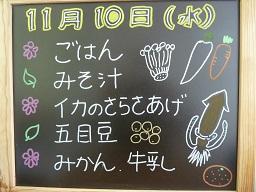 11月10日(水)
ごはん
みそ汁
イカのさらさあげ
五目豆
みかん.牛乳